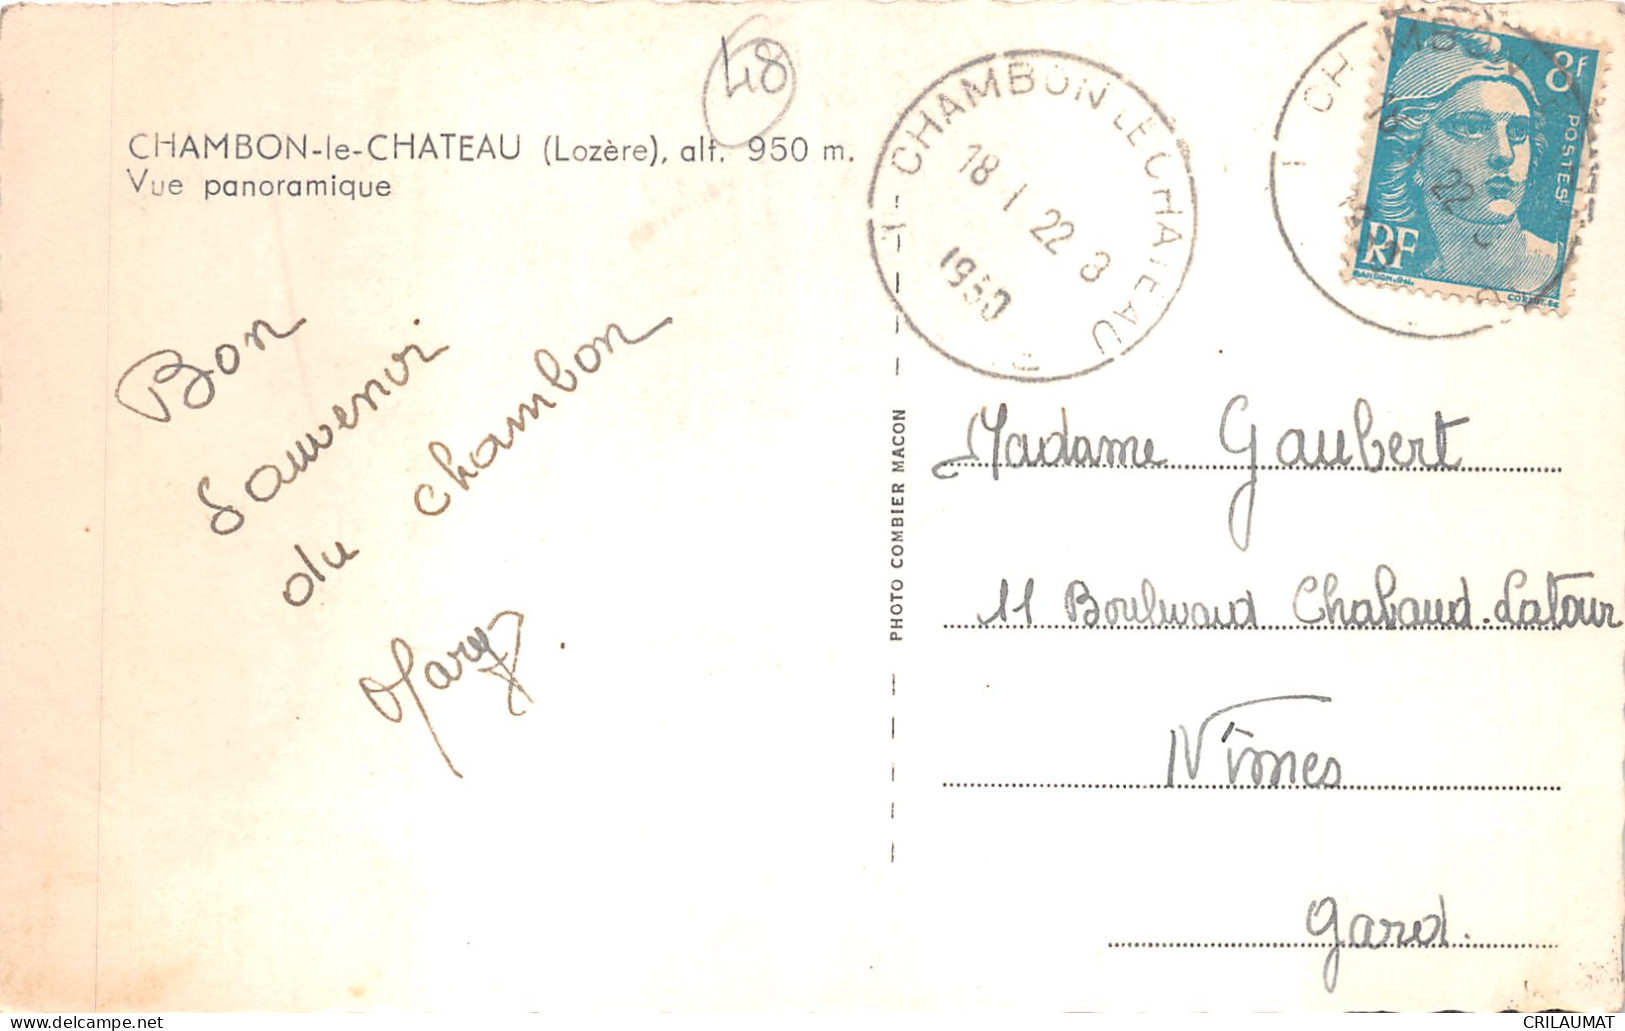 48
CHAMBON-le-CHATEAU (Lozère), alt. 950 m.
Vue panoramique
Bon
Souvenir
du Chambon
Mary
PHOTO COMBIER MACON
CHAMBON LE CHATEAU
18 1 22 3
1950
CHAMBON
22
8F
POSTES
RF
GANDON.DEL
Madame Gaubert
11 Boulevard Chabaud-Latour
Nîmes
Gard.
CRILAUMAT